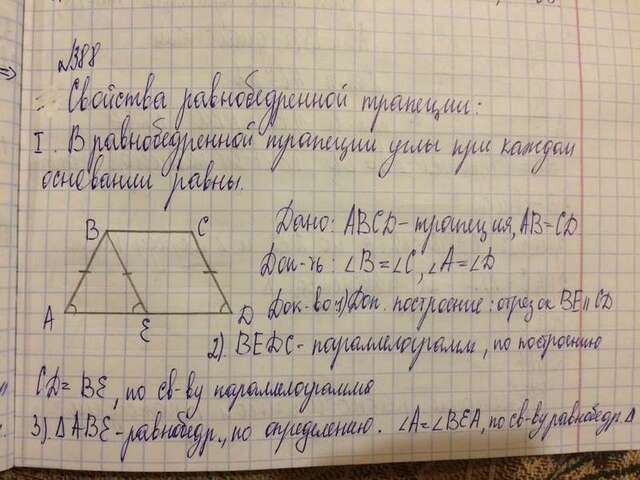 №388
Свойства равнобедренной трапеции:
I. В равнобедренной трапеции углы при каждом
основании равны.
Дано: ABCD-трапеция, AB=CD
Док-ть: ∠B=∠C, ∠A=∠D
Док-во: 1) Доп. построение: отрезок BE||CD
2) BEDC-параллелограмм, по построению
CD=BE, по св-ву параллелограмма
3) ΔABE-равнобедр., по определению. ∠A=∠BEA, по св-ву равнобедр. Δ
B
C
A
E
D